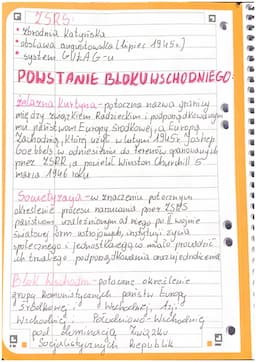 ZSRS:
• zbrodnia katyńska
• obława augustowska (lipiec 1945r.)
• system GUŁAG-u
POWSTANIE BLOKU WSCHODNIEGO:
Żelazna kurtyna - potoczna nazwa granicy
między Związkiem Radzieckim i podporządkowanymi
mu państwami Europy Środkowej, a Europą
Zachodnią, której użył w lutym 1945r. Joseph
Goebbels w odniesieniu do terenów opanowanych
przez ZSRR, a powielał Winston Churchill 5
marca 1946 roku
Sowietyzacja - w znaczeniu potocznym
określenie procesu narzucania przez ZSRS
państwom uzależnionym od niego po II wojnie
światowej form ustrojowych, instytucji życia
społecznego i jednostkowego, co miało prowadzić
ich trwałego podporządkowania oraz ujednolicenia
Blok Wschodni - potoczne określenie
grupy komunistycznych państw Europy
Środkowej, Wschodniej
Wschodniej, Południowo-Wschodniej
pod dominacją Związku
Socjalistycznych Republik